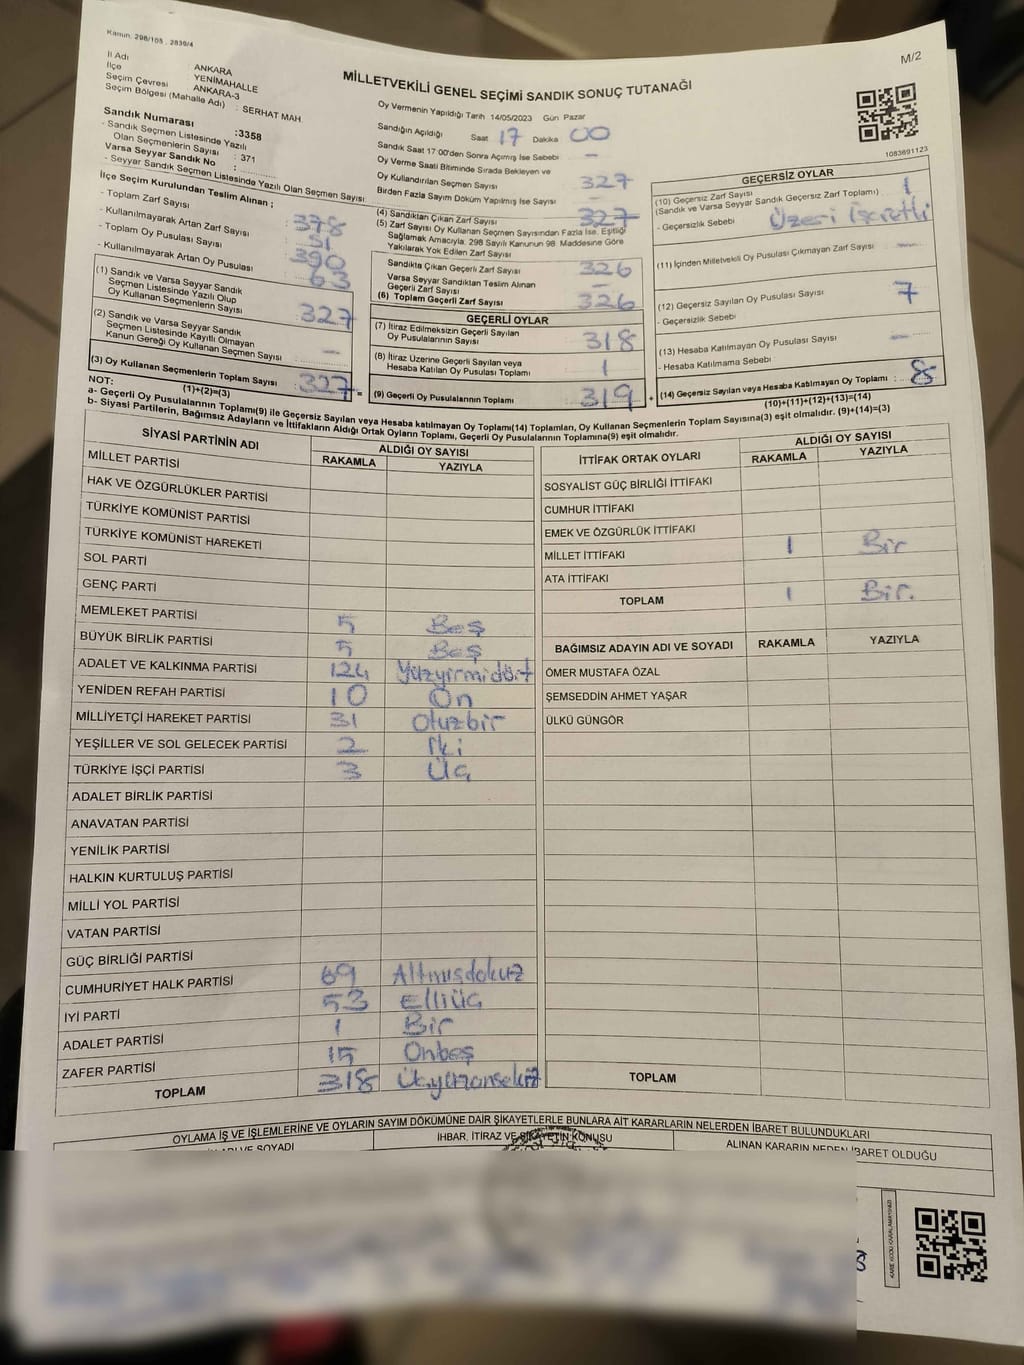 Kanun: 298/105 , 2839/4
M/2
İl Adı : ANKARA
İlçe : YENİMAHALLE
Seçim Çevresi : ANKARA-3
Seçim Bölgesi (Mahalle Adı) : SERHAT MAH.
Sandık Numarası :3358
- Sandık Seçmen Listesinde Yazılı
Olan Seçmenlerin Sayısı : 371
Varsa Seyyar Sandık No :
- Seyyar Sandık Seçmen Listesinde Yazılı Olan Seçmen Sayısı :
İlçe Seçim Kurulundan Teslim Alınan ;
- Toplam Zarf Sayısı : 378
- Kullanılmayarak Artan Zarf Sayısı : 51
- Toplam Oy Pusulası Sayısı : 390
- Kullanılmayarak Artan Oy Pusulası : 63
(1) Sandık ve Varsa Seyyar Sandık
Seçmen Listesinde Yazılı Olup
Oy Kullanan Seçmenlerin Sayısı : 327
(2) Sandık ve Varsa Seyyar Sandık
Seçmen Listesinde Kayıtlı Olmayan
Kanun Gereği Oy Kullanan Seçmen Sayısı : -
(3) Oy Kullanan Seçmenlerin Toplam Sayısı : 327 =
(1)+(2)=(3)
MİLLETVEKİLİ GENEL SEÇİMİ SANDIK SONUÇ TUTANAĞI
Oy Vermenin Yapıldığı Tarih 14/05/2023 Gün Pazar
Sandığın Açıldığı Saat 17 Dakika 00
Sandık Saat 17:00'den Sonra Açılmış İse Sebebi -
Oy Verme Saati Bitiminde Sırada Bekleyen ve
Oy Kullandırılan Seçmen Sayısı 327
Birden Fazla Sayım Döküm Yapılmış İse Sayısı -
(4) Sandıktan Çıkan Zarf Sayısı 327
(5) Zarf Sayısı Oy Kullanan Seçmen Sayısından Fazla İse, Eşitliği
Sağlamak Amacıyla, 298 Sayılı Kanunun 98. Maddesine Göre
Yakılarak Yok Edilen Zarf Sayısı
Sandıkta Çıkan Geçerli Zarf Sayısı 326
Varsa Seyyar Sandıktan Teslim Alınan
Geçerli Zarf Sayısı -
(6) Toplam Geçerli Zarf Sayısı 326
GEÇERLİ OYLAR
(7) İtiraz Edilmeksizin Geçerli Sayılan
Oy Pusulalarının Sayısı 318
(8) İtiraz Üzerine Geçerli Sayılan veya
Hesaba Katılan Oy Pusulası Toplamı 1
(9) Geçerli Oy Pusulalarının Toplamı 319 +
1083691123
GEÇERSİZ OYLAR
(10) Geçersiz Zarf Sayısı 1
(Sandık ve Varsa Seyyar Sandık Geçersiz Zarf Toplamı)
- Geçersizlik Sebebi : Üzeri İşaretli
(11) İçinden Milletvekili Oy Pusulası Çıkmayan Zarf Sayısı : -
(12) Geçersiz Sayılan Oy Pusulası Sayısı : 7
- Geçersizlik Sebebi :
(13) Hesaba Katılmayan Oy Pusulası Sayısı : -
- Hesaba Katılmama Sebebi :
(14) Geçersiz Sayılan veya Hesaba Katılmayan Oy Toplamı : 8
(10)+(11)+(12)+(13)=(14)
NOT:
a- Geçerli Oy Pusulalarının Toplamı(9) ile Geçersiz Sayılan veya Hesaba katılmayan Oy Toplamı(14) Toplamları, Oy Kullanan Seçmenlerin Toplam Sayısına(3) eşit olmalıdır. (9)+(14)=(3)
b- Siyasi Partilerin, Bağımsız Adayların ve İttifakların Aldığı Ortak Oyların Toplamı, Geçerli Oy Pusulalarının Toplamına(9) eşit olmalıdır.
SİYASİ PARTİNİN ADI
ALDIĞI OY SAYISI
RAKAMLA YAZIYLA
MİLLET PARTİSİ
HAK VE ÖZGÜRLÜKLER PARTİSİ
TÜRKİYE KOMÜNİST PARTİSİ
TÜRKİYE KOMÜNİST HAREKETİ
SOL PARTİ
GENÇ PARTİ
MEMLEKET PARTİSİ 5 Beş
BÜYÜK BİRLİK PARTİSİ 5 Beş
ADALET VE KALKINMA PARTİSİ 124 Yüzyirmidört
YENİDEN REFAH PARTİSİ 10 On
MİLLİYETÇİ HAREKET PARTİSİ 31 Otuzbir
YEŞİLLER VE SOL GELECEK PARTİSİ 2 İki
TÜRKİYE İŞÇİ PARTİSİ 3 Üç
ADALET BİRLİK PARTİSİ
ANAVATAN PARTİSİ
YENİLİK PARTİSİ
HALKIN KURTULUŞ PARTİSİ
MİLLİ YOL PARTİSİ
VATAN PARTİSİ
GÜÇ BİRLİĞİ PARTİSİ
CUMHURİYET HALK PARTİSİ 69 Altmışdokuz
İYİ PARTİ 53 Elliüç
ADALET PARTİSİ 1 Bir
ZAFER PARTİSİ 15 Onbeş
TOPLAM 318 Üçyüzonsekiz
İTTİFAK ORTAK OYLARI
ALDIĞI OY SAYISI
RAKAMLA YAZIYLA
SOSYALİST GÜÇ BİRLİĞİ İTTİFAKI
CUMHUR İTTİFAKI
EMEK VE ÖZGÜRLÜK İTTİFAKI
MİLLET İTTİFAKI 1 Bir
ATA İTTİFAKI
TOPLAM 1 Bir.
BAĞIMSIZ ADAYIN ADI VE SOYADI RAKAMLA YAZIYLA
ÖMER MUSTAFA ÖZAL
ŞEMSEDDİN AHMET YAŞAR
ÜLKÜ GÜNGÖR
TOPLAM
OYLAMA İŞ VE İŞLEMLERİNE VE OYLARIN SAYIM DÖKÜMÜNE DAİR ŞİKAYETLERLE BUNLARA AİT KARARLARIN NELERDEN İBARET BULUNDUKLARI
VE SOYADI
İHBAR, İTİRAZ VE ŞİKAYETİN KONUSU
ALINAN KARARIN NEDEN İBARET OLDUĞU
KARE KODU KARALAMAYINIZ